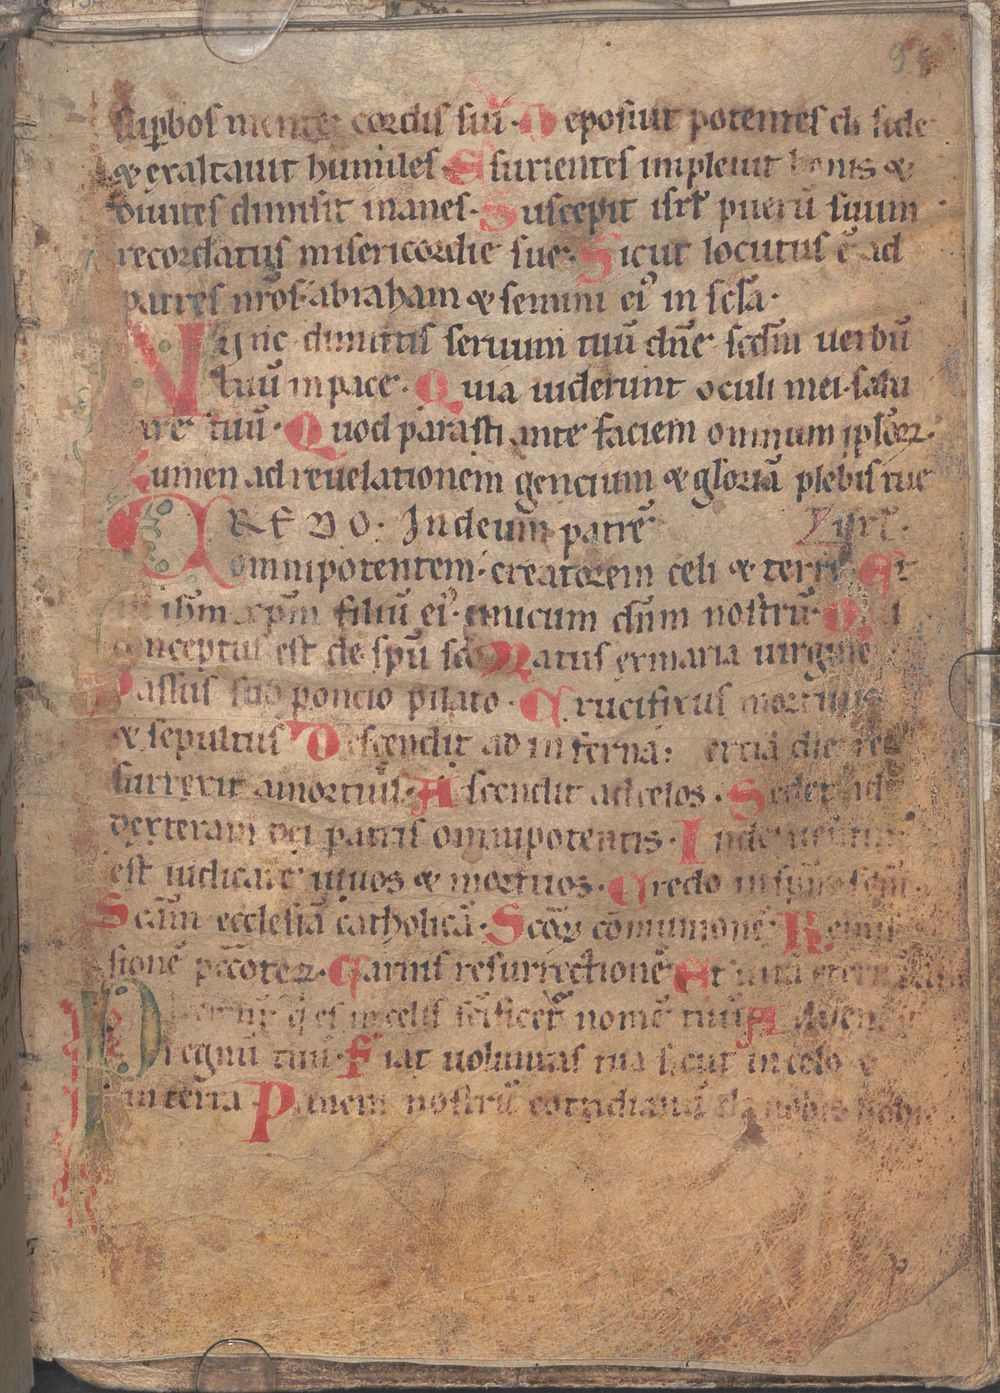 sup̱bos mente cordis sui · Deposuit potentes de sede
& exaltauit humiles Esurientes impleuit bonis &
diuites dimisit inanes · Suscepit isrl̄ puerū suum
recordatus misericordie sue · Sicut locutus ē ad
patres nr̄os abraham & semini ei⁹ in scl̄a ·
Nunc dimittis seruum tuū dn̄e scd̄m uerbū
tuū in pace · Quia uiderunt oculi mei salu
are tuū · Quod parasti ante faciem omnium ipſoꝝ ·
Lumen ad reuelationem gencium & gloriā plebis tue
CREDO · In deum patrē isrl̄ ·
omnipotentem · creatorem celi & terre Et
in ih̄m xp̄m filiū ei⁹ · unicum dn̄m nostrū · Qui
conceptus est de spū sc̄o Natus ex maria uirgine
Passus sub poncio pilato · Crucifixus mortuus
& sepultus Descendit ad inferna : erciā die re
surrexit a mortuis · Ascendit ad celos · Sedet ad
dexteram dei patris omnipotentis · Inde uenturus
est iudicare uiuos & mortuos · Credo in spm̄ scm̄ ·
Scām ecclesiā catholicā · Scōꝝ cōmunionē Remis
sionē pcc̄atoꝝ · Carnis resurrectionē Et uitā eternam
Pater nr̄ q̄ es in celis sc̄ificet᷑ nomē tuū Adueniat
regnū tuū · Fiat uoluntas tua sicut in celo &
in terra Panem nostrū cotidianū da nobis hodie